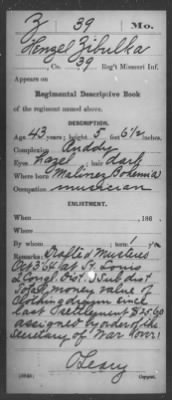 Z 39 Mo.
Henzel Zibulka
Co. 39 Reg't Missouri Inf.
Appears on
Regimental Descriptive Book
of the regiment named above.
DESCRIPTION.
Age 43 years; height 5 feet 6½ inches.
Complexion Ruddy
Eyes hazel; hair dark
Where born Malinez Bohemia
Occupation musician
ENLISTMENT.
When , 186 .
Where
By whom ; term y'rs.
Remarks: Drafted Musters
Oct 31st at St. Louis
2 Cong. Dist. Sub dist
Total money value of
clothing drawn since
last settlement $25.60
assigned by order of the
Secretary of War
Leary
Copyist.